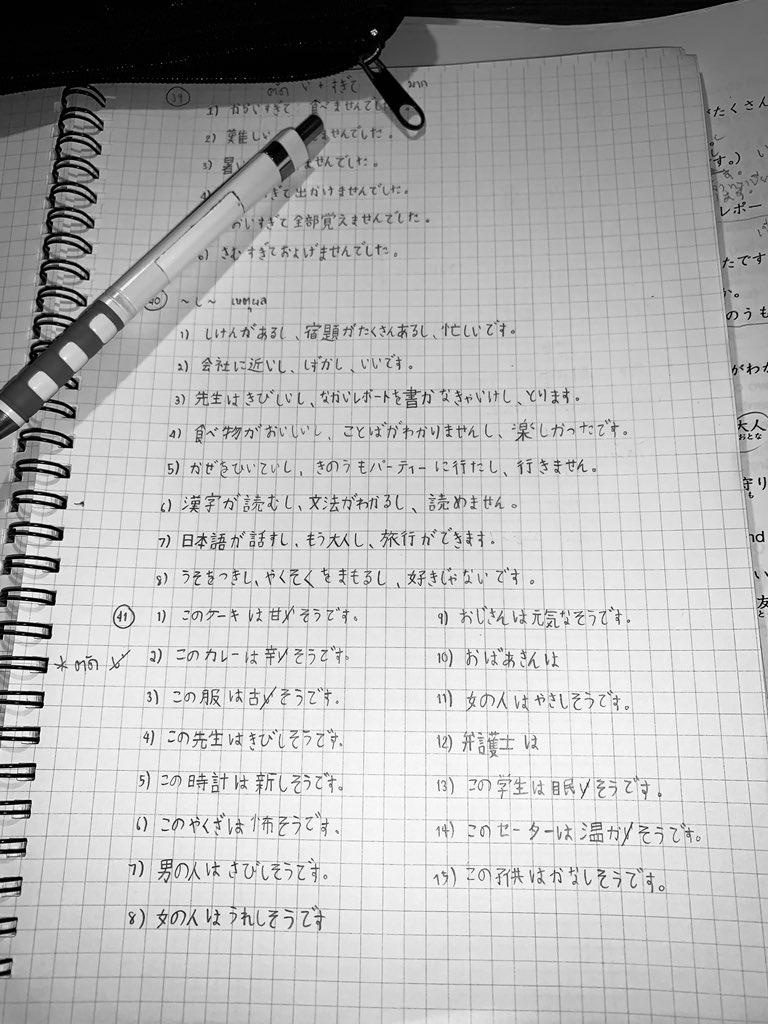 39 ตัด い + すぎて มาก
1) からいすぎて 食べませんでした。
2) 難しい ませんでした。
3) 暑い ませんでした。
ぎて出かけませんでした。
おいすぎて全部覚えませんでした。
6) さむすぎておよげませんでした。
40 ~し~ เหตุผล
1) しけんがあるし、宿題がたくさんあるし、忙しいです。
2) 会社に近いし、しずかし、いいです。
3) 先生はきびしいし、ながいレポートを書かなきゃいけし、とります。
4) 食べ物がおいしいし、ことばがわかりませんし、楽しかったです。
5) かぜをひいていし、きのうもパーティーに行たし、行きません。
6) 漢字が読むし、文法がわかるし、読めません。
7) 日本語が話すし、もう大人し、旅行ができます。
8) うそをつきし、やくそくをまもるし、好きじゃないです。
41 1) このケーキは甘いそうです。
* ตัด い 2) このカレーは辛いそうです。
3) この服は古いそうです。
4) この先生はきびしそうです.
5) この時計は新しそうです。
6) このやくざは怖そうです.
7) 男の人はさびしそうです。
8) 女の人はうれしそうです
9) おじさんは元気なそうです。
10) おばあさんは
11) 女の人はやさしそうです。
12) 弁護士は
13) この学生は眠いそうです。
14) このセーターは温かいそうです。
15) この子供はかなしそうです。
たくさん
す。)
レポー
たです
か。
のうも
がわか
大人
おとな
守り
nd
い
友